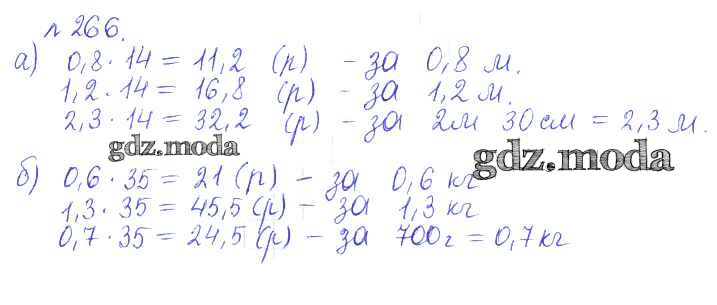 № 266.
а) 0,8 · 14 = 11,2 (р) – за 0,8 м.
1,2 · 14 = 16,8 (р) – за 1,2 м.
2,3 · 14 = 32,2 (р) – за 2м 30 см = 2,3 м.
gdz.moda
gdz.moda
б) 0,6 · 35 = 21 (р) – за 0,6 кг
1,3 · 35 = 45,5 (р) – за 1,3 кг
0,7 · 35 = 24,5 (р) – за 700г = 0,7 кг